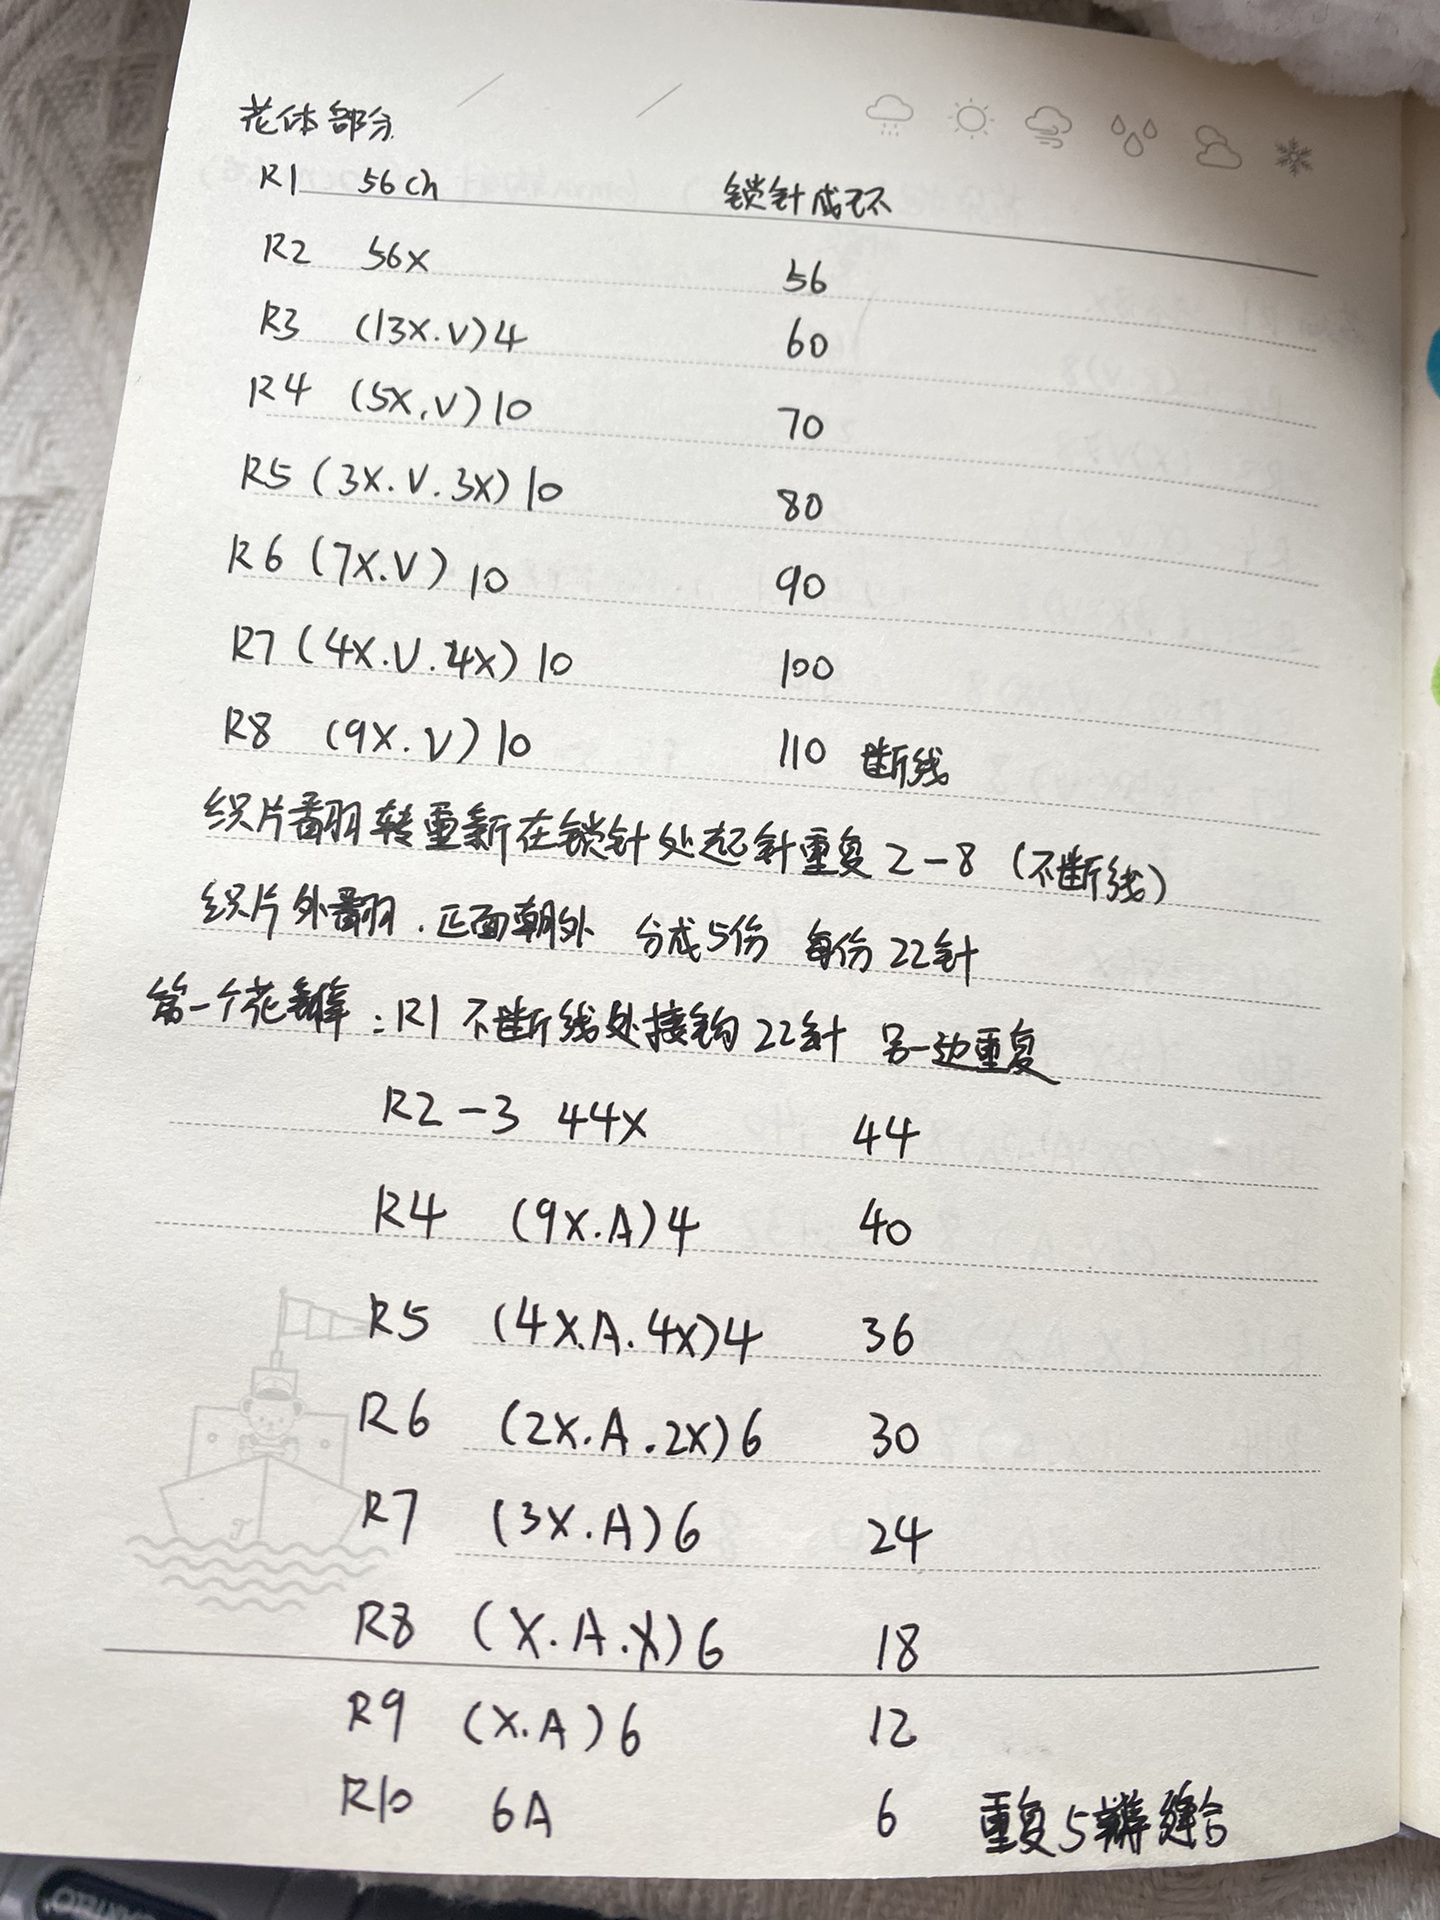 花体部分
R1 56ch 锁针成环
R2 56X 56
R3 (13X.V)4 60
R4 (5X.V)10 70
R5 (3X.V.3X)10 80
R6 (7X.V)10 90
R7 (4X.V.4X)10 100
R8 (9X.V)10 110 断线
织片翻转重新在锁针处起针重复2-8(不断线)
织片外翻.正面朝外 分成5份 每份22针
第一个花瓣:R1 不断线处接钩22针 另一边重复
R2-3 44X 44
R4 (9X.A)4 40
R5 (4X.A.4X)4 36
R6 (2X.A.2X)6 30
R7 (3X.A)6 24
R8 (X.A.X)6 18
R9 (X.A)6 12
R10 6A 6 重复5瓣缝合